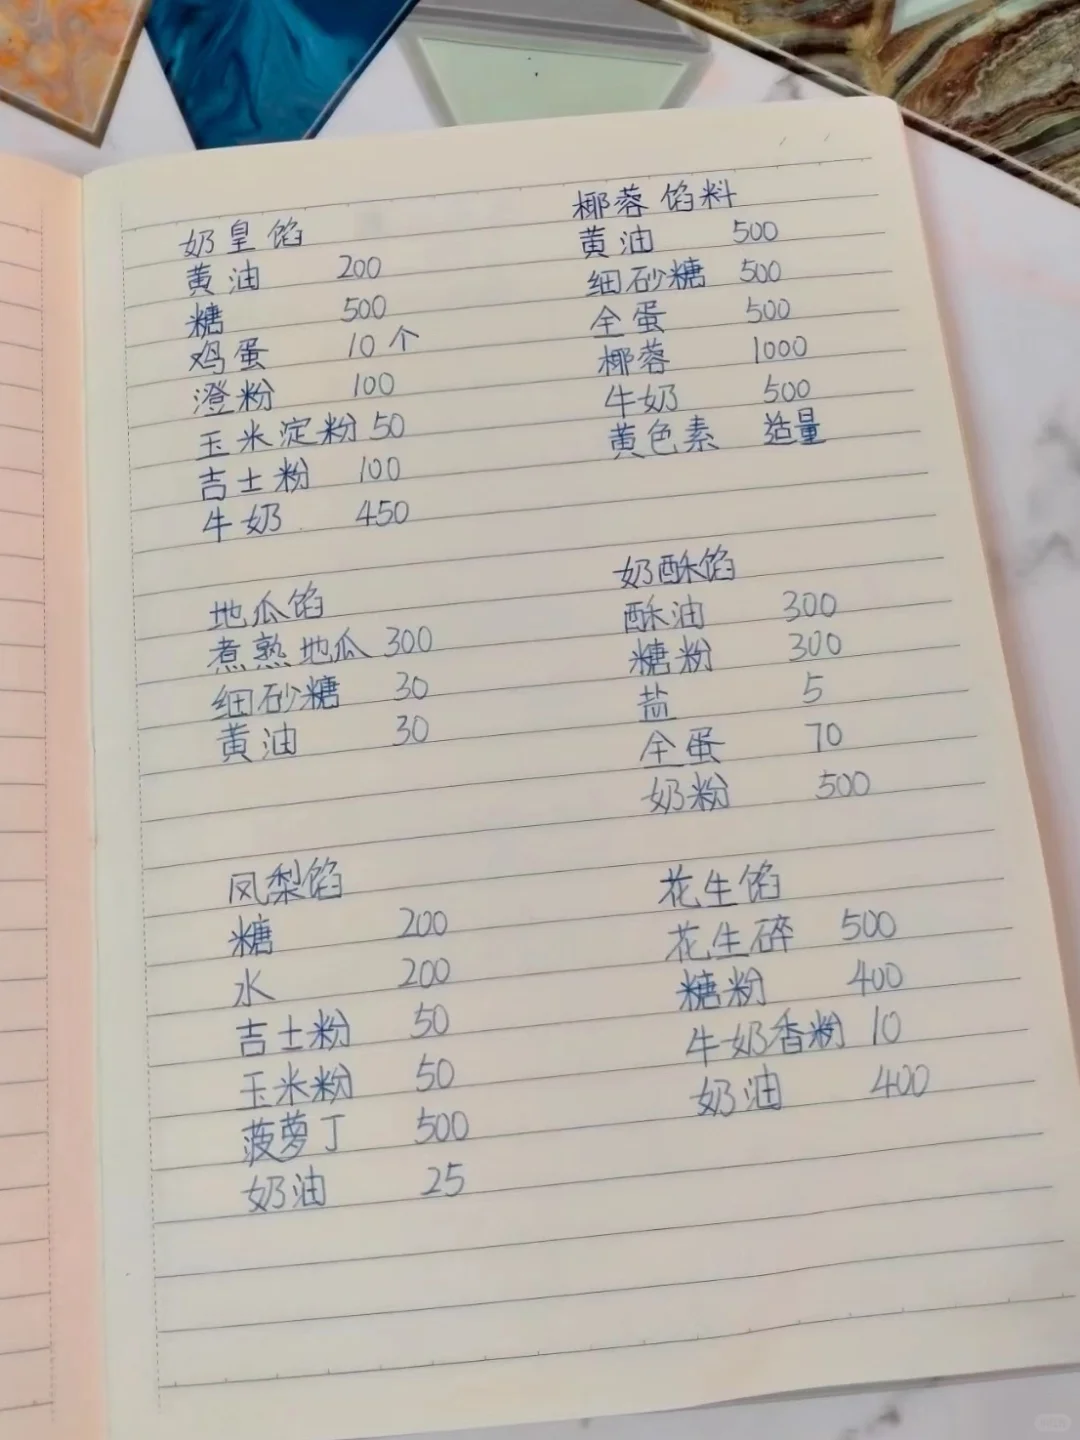 奶皇馅
黄油 200
糖 500
鸡蛋 10个
澄粉 100
玉米淀粉 50
吉士粉 100
牛奶 450
椰蓉馅料
黄油 500
细砂糖 500
全蛋 500
椰蓉 1000
牛奶 500
黄色素 适量
地瓜馅
煮熟地瓜 300
细砂糖 30
黄油 30
奶酥馅
酥油 300
糖粉 300
盐 5
全蛋 70
奶粉 500
凤梨馅
糖 200
水 200
吉士粉 50
玉米粉 50
菠萝丁 500
奶油 25
花生馅
花生碎 500
糖粉 400
牛奶香粉 10
奶油 400